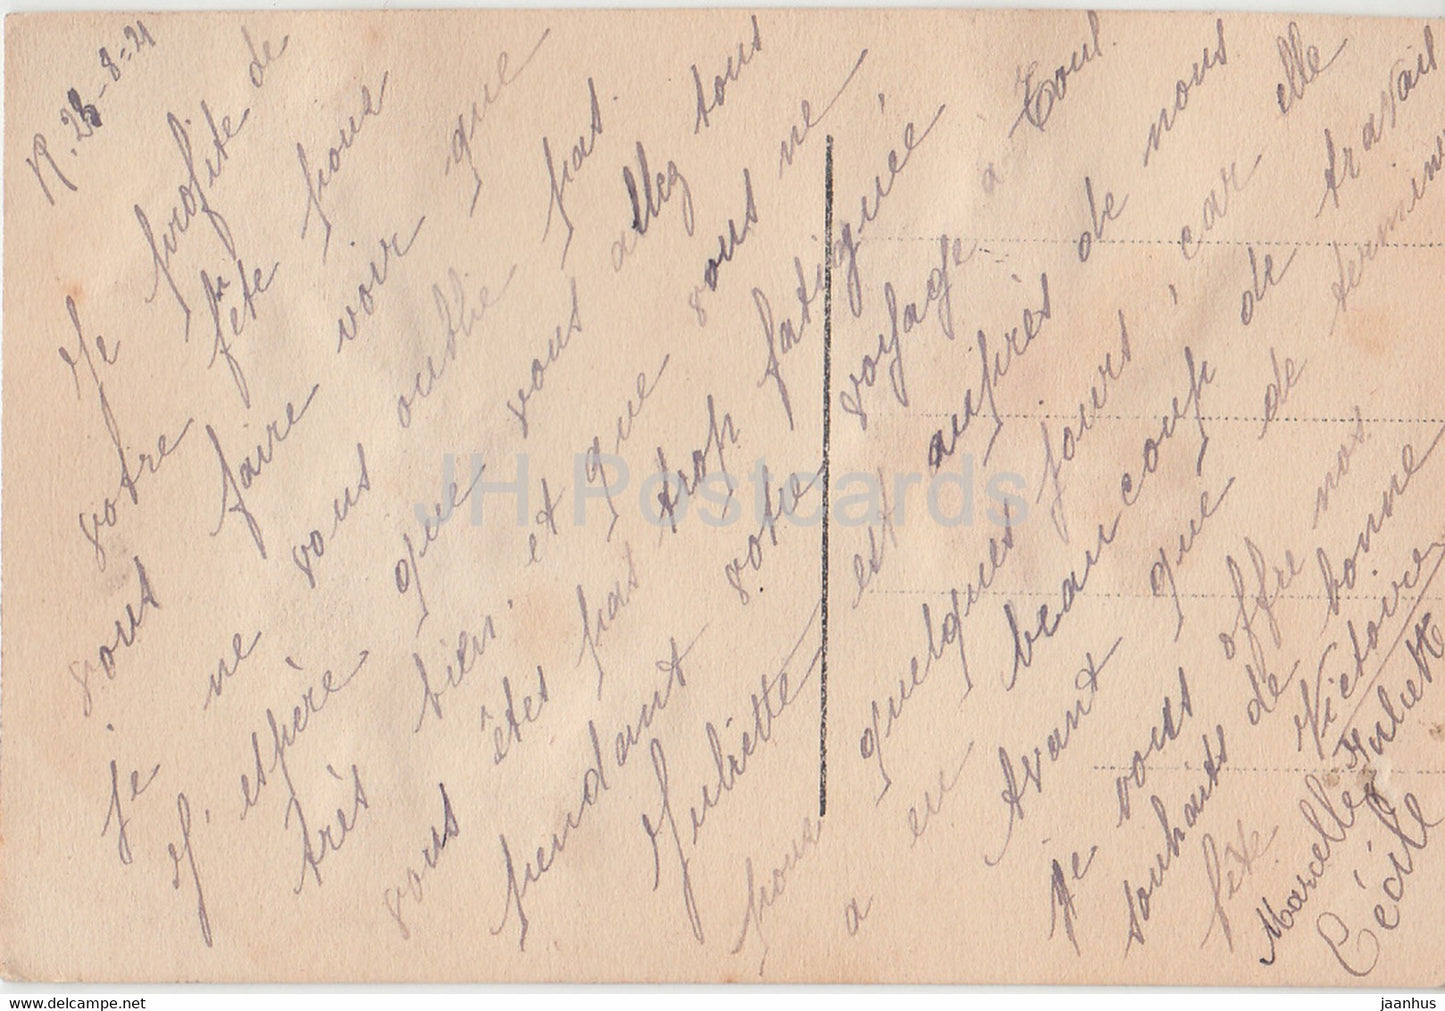 R. 28-8-21
Je profite de
votre fête pour
vous faire voir que
je ne vous oublie pas.
J'espère que vous allez tous
très bien et que vous ne
vous êtes pas trop fatiguée
pendant votre voyage a Toul.
Juliette est auprès de nous
pour quelques jours car elle
a eu beaucoup de travail
Avant que de terminé
Je vous offre nos
souhaits de bonne
fête Victoire
Marcelle Juliette
Cécile
JH Postcards
jaanhus.com